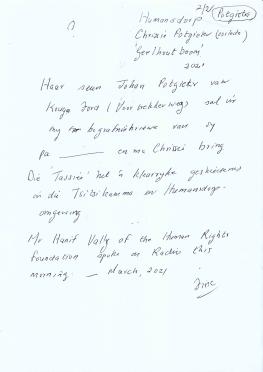 2/2/ Potgieter
?
Humansdorp
Chrissie Potgieter
'Geelhoutboom'
2021
Haar seun Johan Potgieter van
Kruga Ford (Voortrekkerweg) sal vir
my begrafnisbriewe van sy
pa en ma Chrissie bring
Die 'Tassies' het 'n kleurryke geskiedenis
in die Tsitsikamma en Humansdorp-
omgewing
Mr Hanif Vally of the Human Rights
Foundation spoke on Radio this
morning. — March, 2021